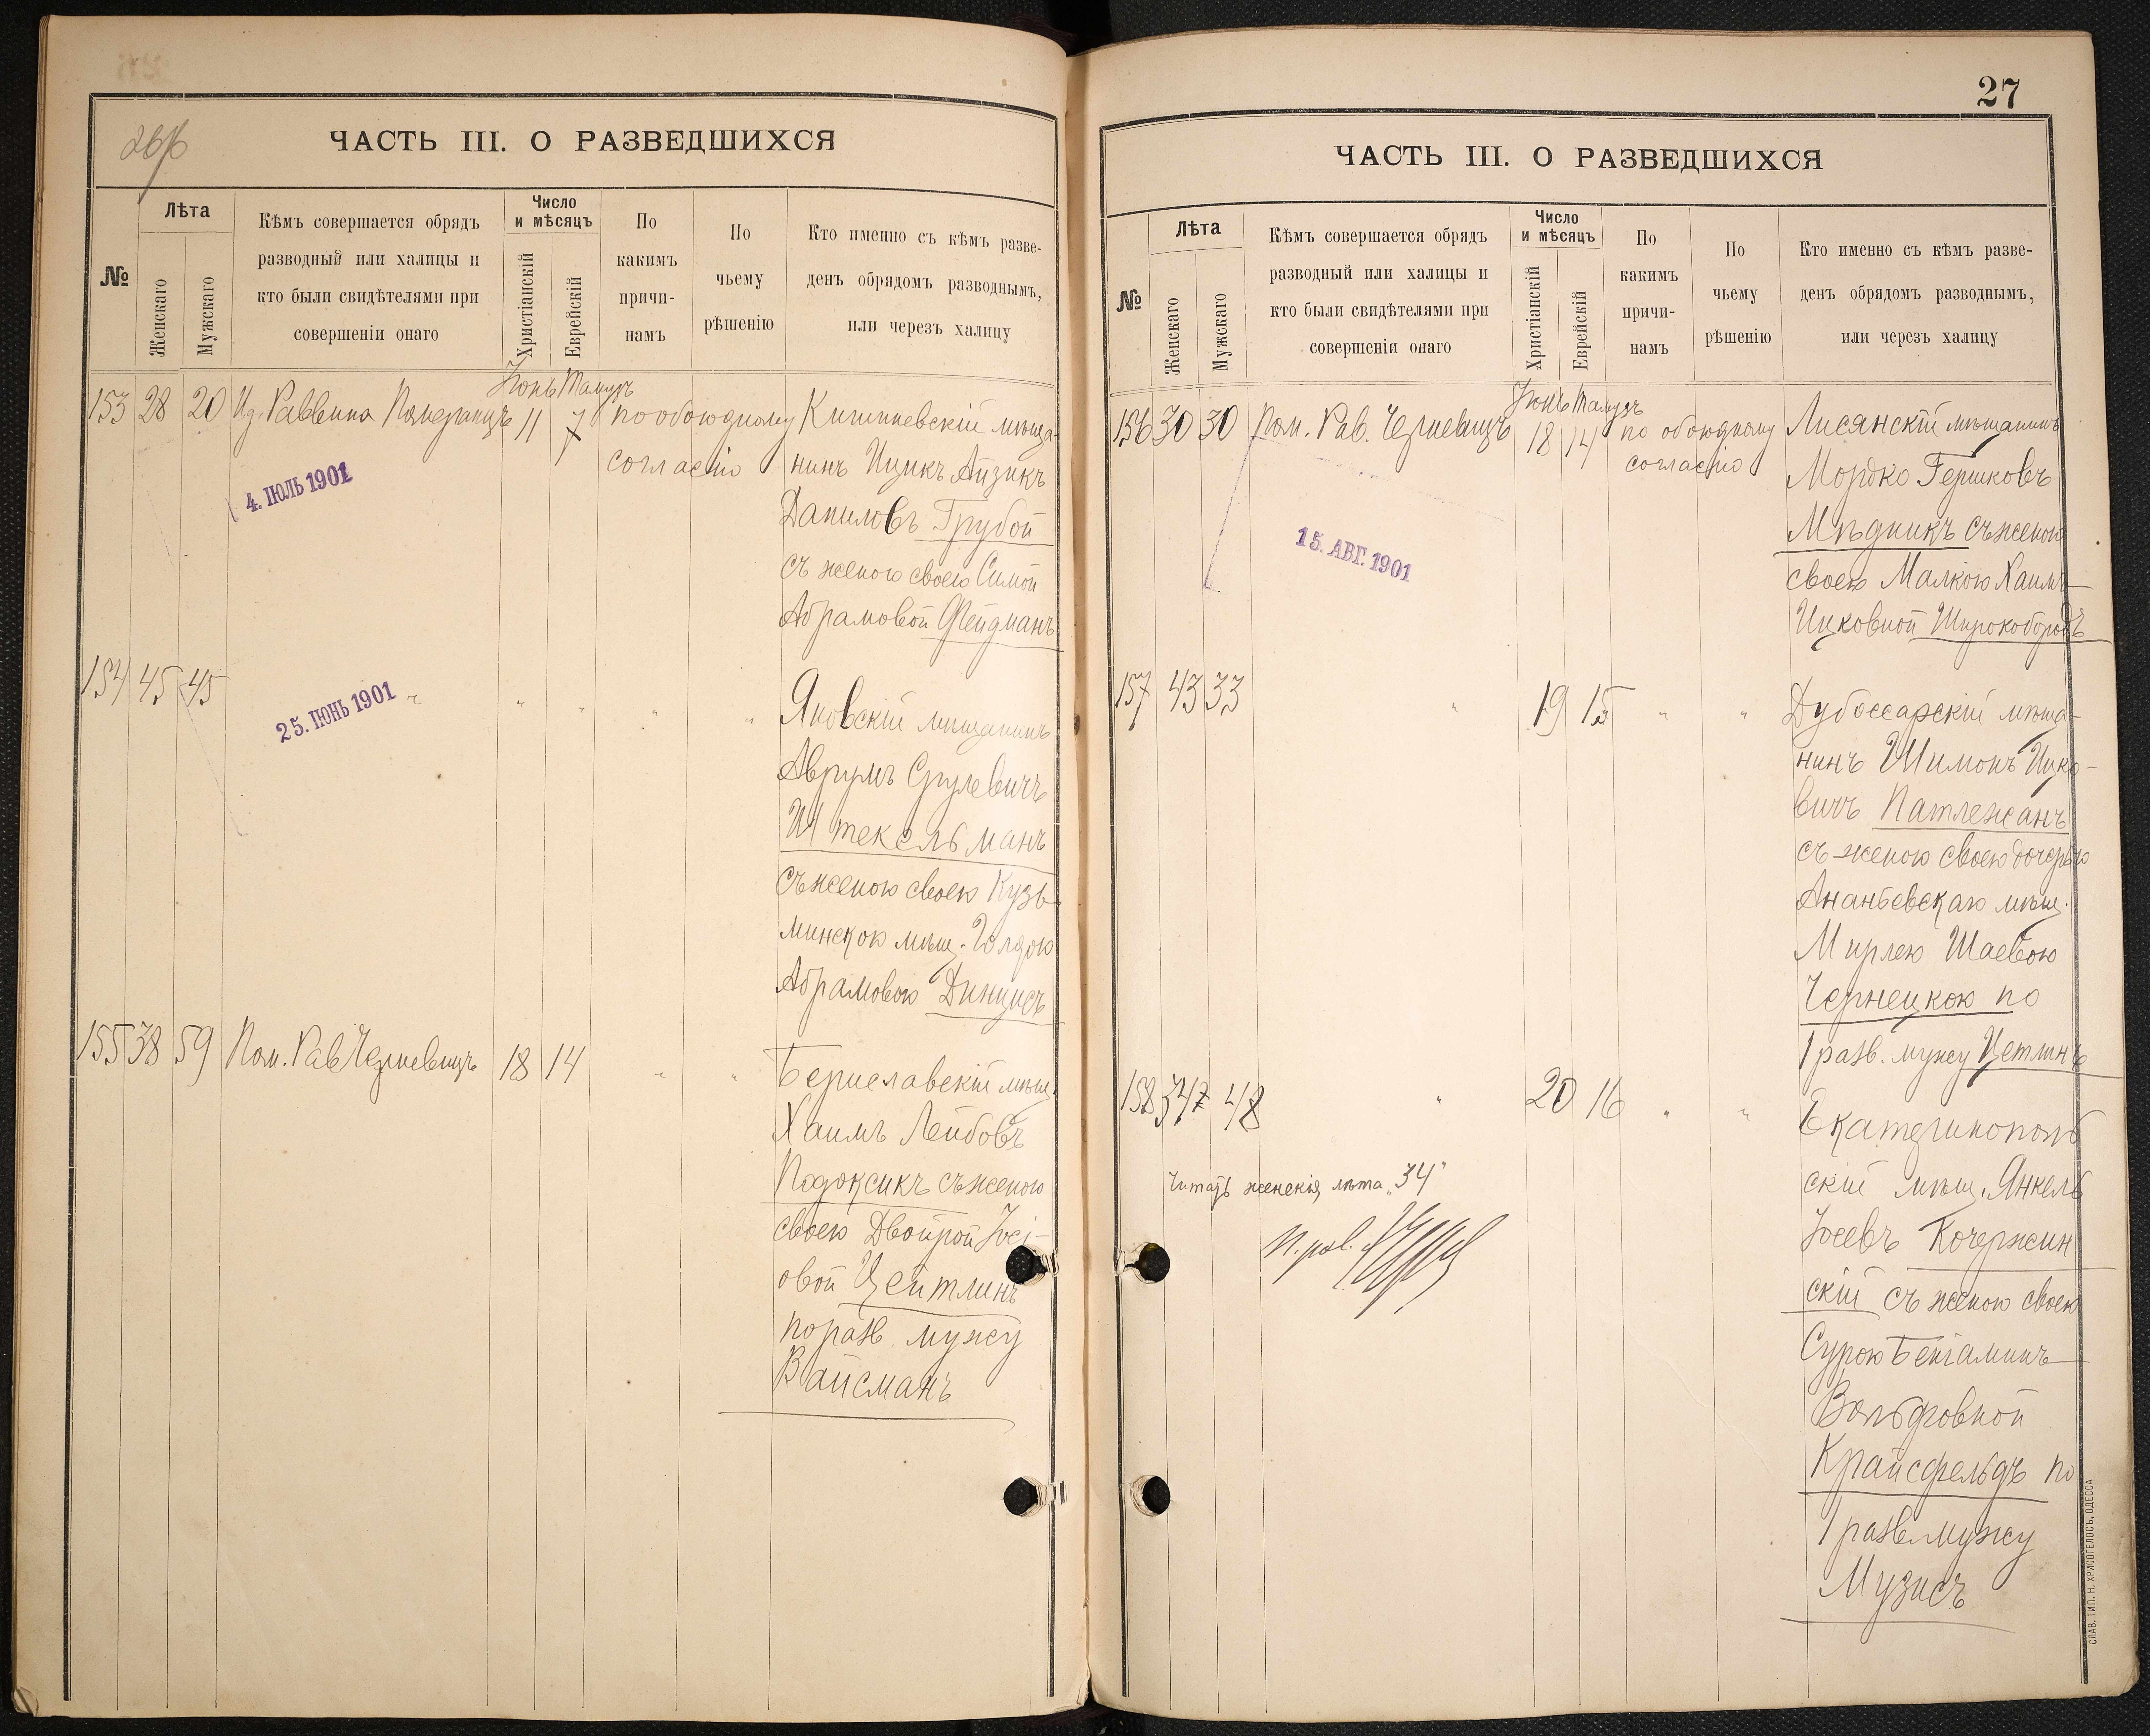 266
ЧАСТЬ III. О РАЗВЕДШИХСЯ
№
Лѣта
Женскаго
Мужскаго
Кѣмъ совершается обрядъ
разводный или халицы и
кто были свидѣтелями при
совершеніи онаго
Число
и мѣсяцъ
Христіанскій
Еврейскій
По
какимъ
причи-
намъ
По
чьему
рѣшенію
Кто именно съ кѣмъ разве-
денъ обрядомъ разводнымъ,
или черезъ халицу
Іюнь Тамузъ
153 28 20 Из. Раввина Померанцъ 11 7 по обоюдному
согласію
Кишиневскій мѣща-
нинъ Ицикъ Айзикъ
Даниловъ Грубой
съ женою своею Симой
Абрамовой Фейдманъ
4. ІЮЛЬ 1901
154 45 45 " " " " "
25. ІЮНЬ 1901
Яновскій мѣщанинъ
Аврумъ Срулевичъ
Штекельманъ
съ женою своею Кузь-
минскою мѣщ. Голдою
Абрамовою Динцисъ
155 38 59 Пом. Рав Черневицъ 18 14 " "
Бериславскій мѣщ.
Хаимъ Лейбовъ
Подоксикъ съ женою
своею Двойрой Іосі-
овой Цейтлинъ
по разв. мужу
Вайсманъ
27
ЧАСТЬ III. О РАЗВЕДШИХСЯ
№
Лѣта
Женскаго
Мужскаго
Кѣмъ совершается обрядъ
разводный или халицы и
кто были свидѣтелями при
совершеніи онаго
Число
и мѣсяцъ
Христіанскій
Еврейскій
По
какимъ
причи-
намъ
По
чьему
рѣшенію
Кто именно съ кѣмъ разве-
денъ обрядомъ разводнымъ,
или черезъ халицу
Іюнь Тамузъ
156 30 30 Пом. Рав. Черневицъ 18 14 по обоюдному
согласію
Лисянскій мѣщанинъ
Мордко Гершковъ
Мѣдникъ съ женою
своею Малкою Хаимъ-
Ицковной Широкобородъ
15. АВГ. 1901
157 43 33 " 19 15 " "
Дубоссарскій мѣща-
нинъ Шимонъ Ицко-
вичъ Патлежанъ
съ женою своею дочерью
Ананьевскаго мѣщ.
Мирлею Шаевою
Чернецкою по
1 разв. мужу Цетлинъ
158 347 48 " 20 16 " "
Екатеринополь
скій мѣщ. Янкель
Іосевъ Кочержин
скій съ женою своею
Сурою Беніаминъ-
Вольфовной
Крайсфельдъ по
1 разв мужу
Музисъ
Читать женскія лѣта „34"
П. рав.
СЛАВ. ТИП. Н. ХРИСОГЕЛОСЪ, ОДЕССА